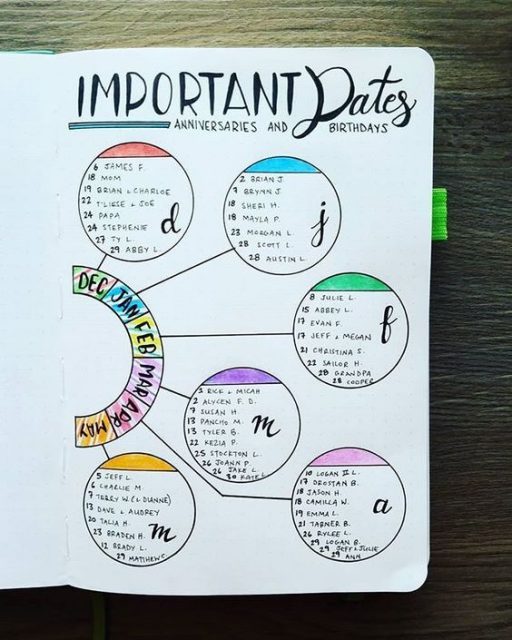 IMPORTANT Dates
ANNIVERSARIES AND BIRTHDAYS
6 JAMES F.
18 MOM
19 BRIAN + CHARLOE
22 T'LIESE + JOE
24 PAPA
24 STEPHENIE
27 TY L.
29 ABBY L.
d
2 BRIAN J.
7 BRYNN J.
18 SHERI H.
18 MAYLA P.
23 MORGAN L.
28 SCOTT L.
28 AUSTIN L.
j
8 JULIE L.
15 ABBEY L.
17 EVAN F.
17 JEFF + MEGAN
21 CHRISTINA S.
22 SAILOR H.
28 GRANDPA
28 COOPER
f
DEC
JAN
FEB
MAR
APR
MAY
RICK + MICAH
2 ALYCEN F. D.
7 SUSAN H.
13 PANCHO M.
13 TYLER B.
22 KEZIA P.
25 STOCKTON L.
26 JOANN P.
26 JAKE L.
30 KATE L.
m
10 LOGAN II L.
17 DROSTAN B.
18 JASON H.
18 CAMILLA W.
19 EMMA L.
21 TABNER B.
26 RYLEE L.
29 LOGAN B.
29 JEFF + JULIE
29 ANN
a
5 JEFF L.
6 CHARLIE M.
7 TERRY W. (L DUNNE)
13 DAVE + AUDREY
20 TALIA H.
23 BRADEN H.
12 BRADY L.
29 MATTHEW C.
m